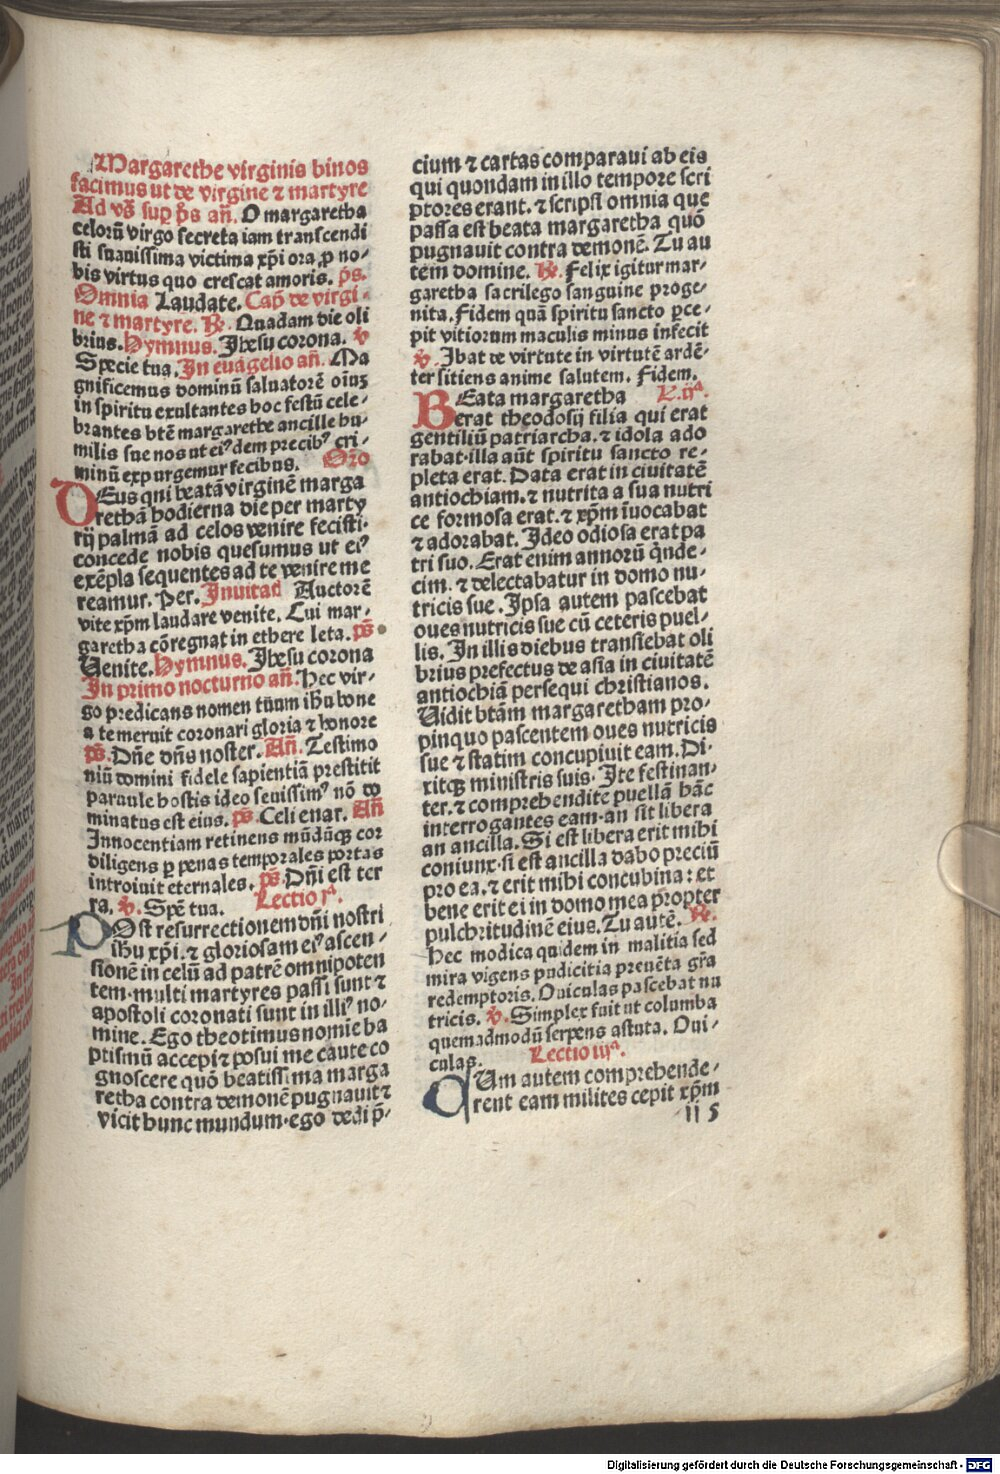 Margarethe virginis binos
facimus ut de virgine ⁊ martyre
Ad vs̄ suꝑ p̄s an̄. O margaretha
celorū virgo secreta iam transcendi
sti suauissima victima xp̄i ora ꝓ no⸗
bis virtus quo crescat amoris. p̄s.
Omnia Laudate. Cap̄ de virgi⸗
ne ⁊ martyre. R̄. Quadam die oli
brius. Hymnus. Jhesu corona. v̄
Specie tua. In euāgelio an̄. Ma
gnificemus dominū saluatorē oīuꝫ
in spiritu exultantes hoc festū cele⸗
brantes btē margarethe ancille hu⸗
milis sue nos ut eiꝰdem precibꝰ cri⸗
minū expurgemur fecibus. Oro
DEus qui beatā virginē marga
rethā hodierna die per marty
rij palmā ad celos venire fecisti⸗
concede nobis quesumus ut eiꝰ
exēpla sequentes ad te venire me
reamur. Per. Inuitad Auctorē
vite xp̄m laudare venite. Cui mar⸗
garetha cōregnat in ethere leta. p̄s
Venite. Hymnus. Jhesu corona
In primo nocturno an̄. Hec vir⸗
go predicans nomen tūum ihū bone
a te meruit coronari gloria ⁊ honore
p̄s. Dn̄e dn̄s noster. An̄. Testimo
niū domini fidele sapientiā prestitit
paruule hostis ideo seuissimꝰ nō do
minatus est eius. p̄s. Celi enar. An̄
Innocentiam retinens mūdūqꝫ cor
diligens ꝑ penas temporales portas
introiuit eternales. p̄s. Dn̄i est ter
ra. v̄. Spē tua. Lectio jª.
POst resurrectionem dn̄i nostri
ihū xp̄i. ⁊ gloriosam eiꝰ ascen⸗
sionē in celū ad patrē omnipoten
tem⸱ multi martyres passi sunt ⁊
apostoli coronati sunt in illiꝰ no⸗
mine. Ego theotimus nomīe ba
ptismū accepi ⁊ posui me caute co
gnoscere quō beatissima marga
retha contra demonē pugnauit ⁊
vicit hunc mundum⸱ ego dedi p̄⸗
cium ⁊ cartas comparaui ab eis
qui quondam in illo tempore scri
ptores erant. ⁊ scripsi omnia que
passa est beata margaretha quō
pugnauit contra demonē. Tu au
tem domine. R̄. Felix igitur mar⸗
garetha sacrilego sanguine proge⸗
nita. Fidem quā spiritu sancto ꝑce⸗
pit vitiorum maculis minus infecit
v̄. Jbat de virtute in virtutē ardē⸗
ter sitiens anime salutem. Fidem.
BEata margaretha L.ijª.
erat theodosij filia qui erat
gentiliū patriarcha. ⁊ idola ado
rabat⸱ illa aūt spiritu sancto re⸗
pleta erat. Data erat in ciuitatē
antiochiam. ⁊ nutrita a sua nutri
ce formosa erat. ⁊ xp̄m īuocabat
⁊ adorabat. Jdeo odiosa erat pa
tri suo. Erat enim annorū q̄nde⸗
cim. ⁊ delectabatur in domo nu⸗
tricis sue. Jpsa autem pascebat
oues nutricis sue cū ceteris puel⸗
lis. Jn illis diebus transiebat oli
brius prefectus de asia in ciuitatē
antiochiā persequi christianos.
Vidit btām margaretham pro⸗
pinquo pascentem oues nutricis
sue ⁊ statim concupiuit eam. Di⸗
xitqꝫ ministris suis. Jte festinan⸗
ter. ⁊ comprehendite puellā hāc
interrogantes eam⸱ an sit libera
an ancilla. Si est libera erit mihi
coniunx⸱ si est ancilla dabo preciū
pro ea. ⁊ erit mihi concubina: et
bene erit ei in domo mea propter
pulchritudinē eius. Tu autē. R̄.
Hec modica quidem in malitia sed
mira vigens pudicitia preuēta gr̄a
redemptoris. Ouiculas pascebat nu
tricis. v̄. Simplex fuit ut columba
quemadmodū serpens astuta. Oui⸗
culas. Lectio iijª.
CUm autem comprehende⸗
rent eam milites cepit xp̄m
II 5
Digitalisierung gefördert durch die Deutsche Forschungsgemeinschaft - DFG